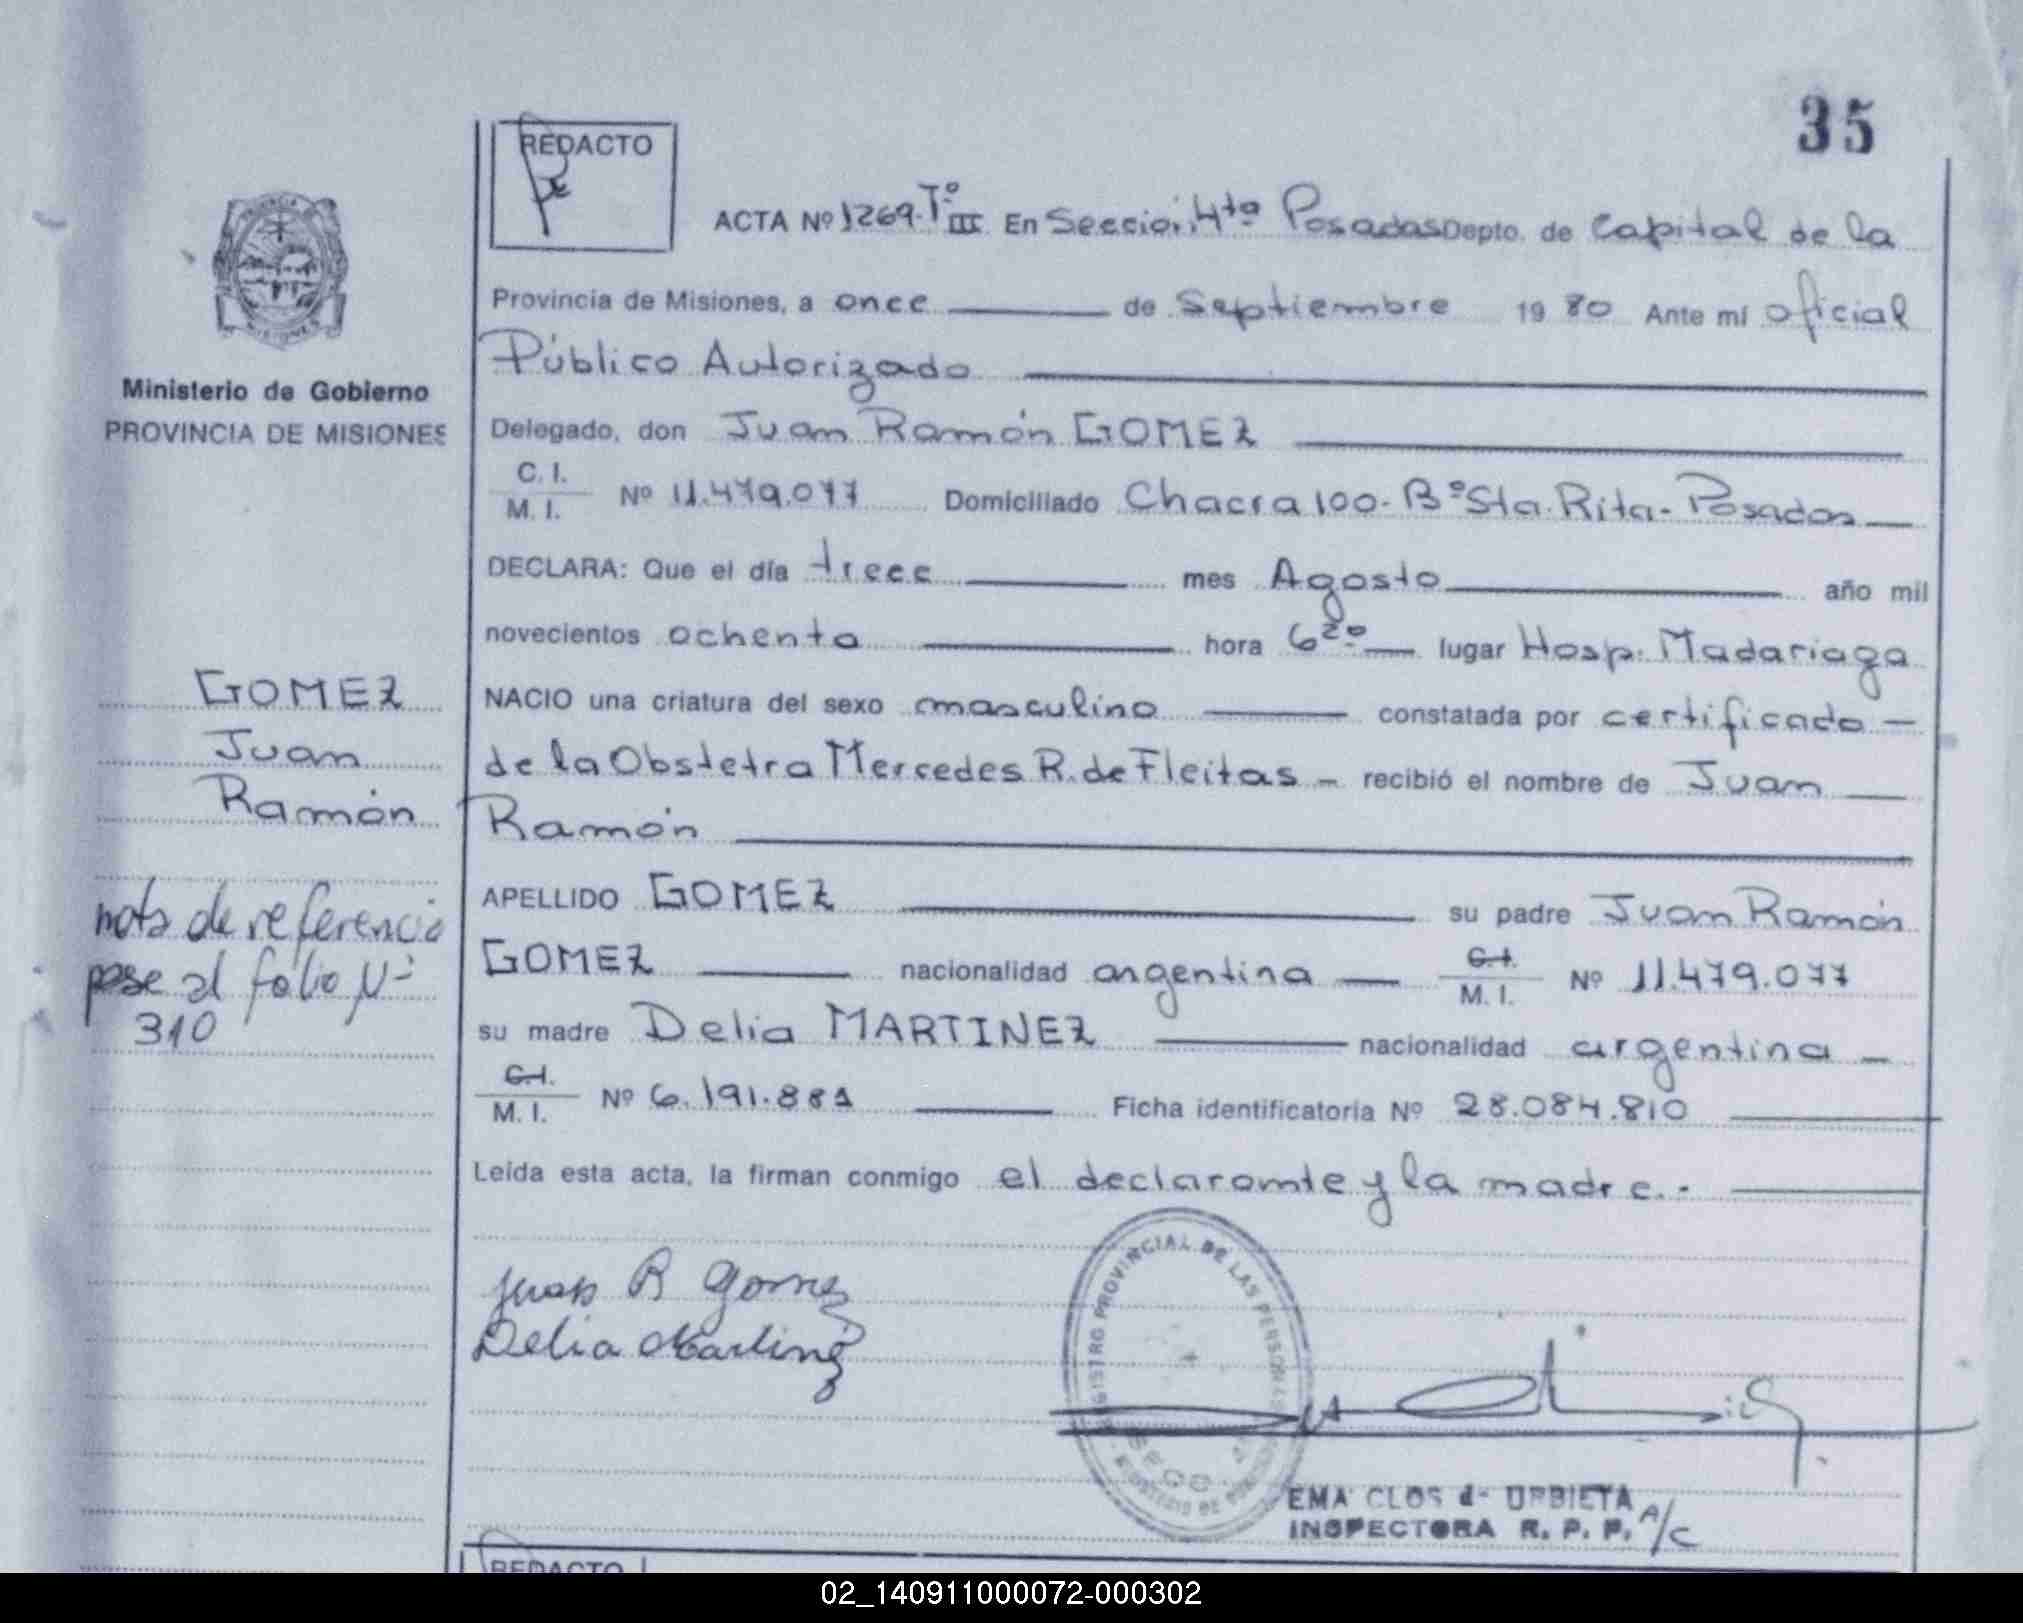 35
REDACTO
ACTA Nº 1269-Tº III En Sección 4ta Posadas Depto. de Capital de la
Provincia de Misiones, a once de Septiembre 1980 Ante mí oficial
Público Autorizado
Ministerio de Gobierno
PROVINCIA DE MISIONES
Delegado, don Juan Ramón GOMEZ
C. I.
M. I. Nº 11.479.077 Domiciliado Chacra 100-Bº Sta. Rita-Posadas
DECLARA: Que el día trece mes Agosto año mil
novecientos ochenta hora 6 20 lugar Hosp. Madariaga
GOMEZ
Juan
Ramón
NACIO una criatura del sexo masculino constatada por certificado
de la Obstetra Mercedes R. de Fleitas - recibió el nombre de Juan
Ramón
nota de referencia
pase al folio Nº
310
APELLIDO GOMEZ su padre Juan Ramón
GOMEZ nacionalidad argentina C. I.
M. I. Nº 11.479.077
su madre Delia MARTINEZ nacionalidad argentina
C. I.
M. I. Nº 6.191.881 Ficha identificatoria Nº 28.084.810
Leída esta acta, la firman conmigo el declarante y la madre.-
Juan R Gomez
Delia Martinez
REGISTRO PROVINCIAL DE LAS PERSONAS
EMA CLOS de URBIETA
INSPECTORA R. P. P. A/C
REDACTO
02_140911000072-000302